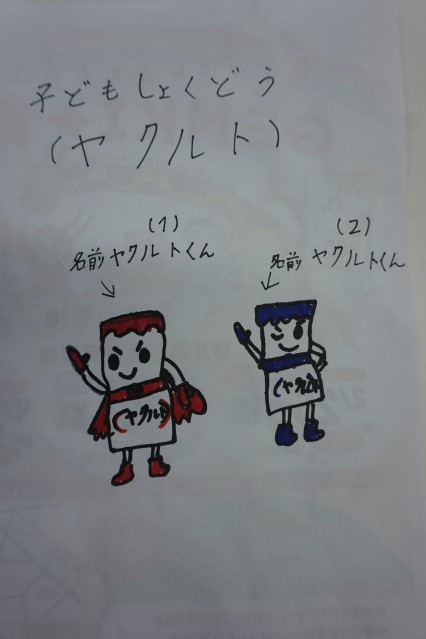 子どもしょくどう
(ヤクルト)
(1)
名前 ヤクルトくん
(2)
名前 ヤクルトくん
(ヤクルト)
(ヤクルト)